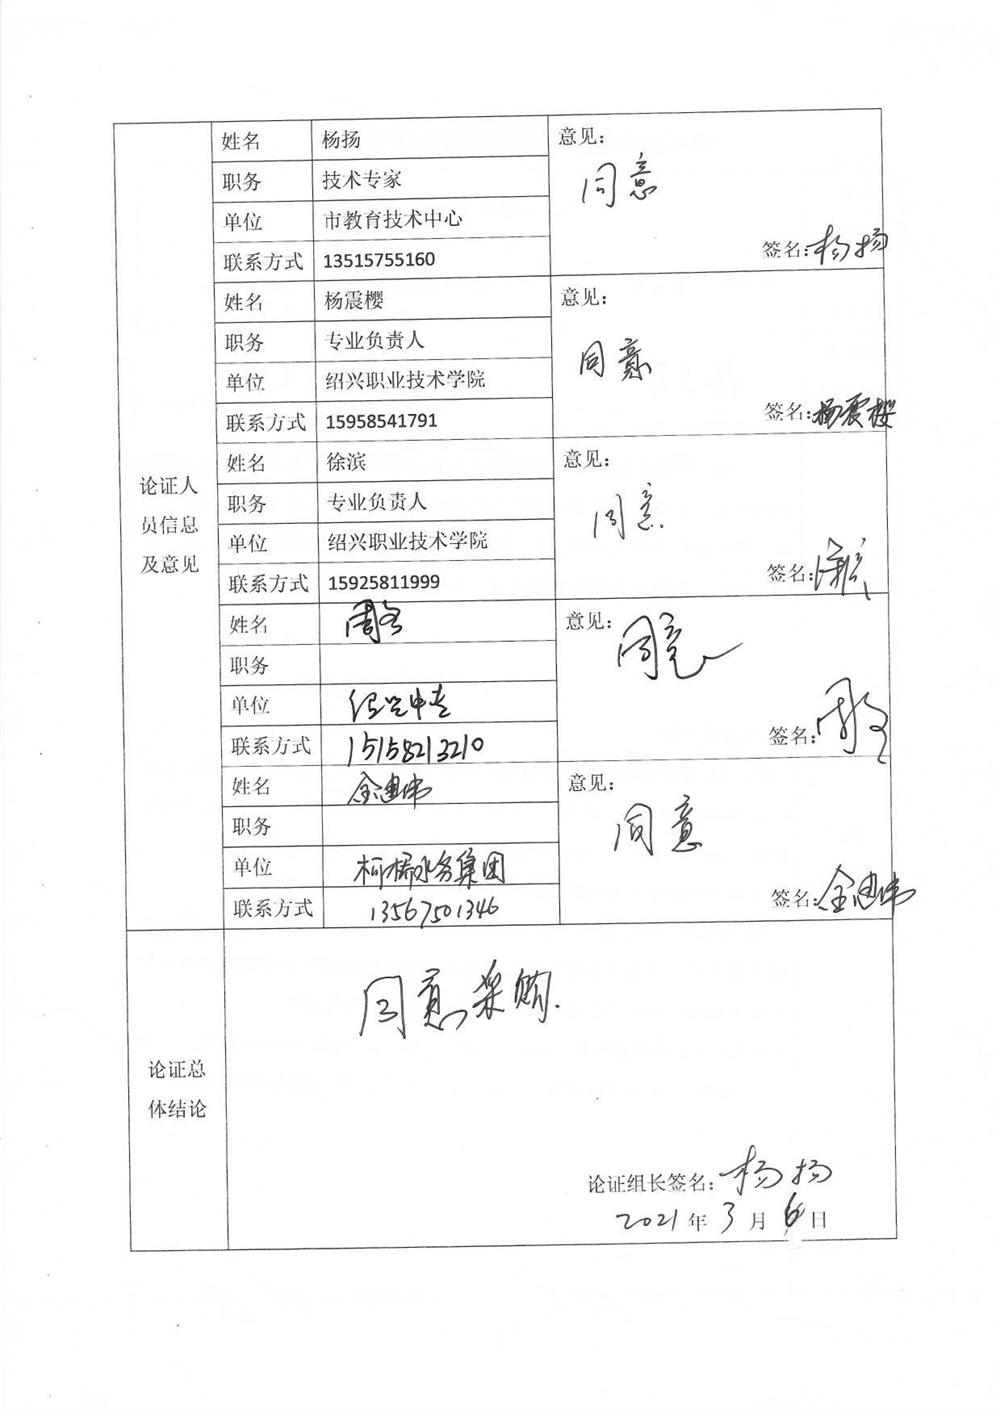 姓名 杨扬 意见：
同意
职务 技术专家
单位 市教育技术中心
联系方式 13515755160 签名：杨扬
姓名 杨震樱 意见：
职务 专业负责人 同意
单位 绍兴职业技术学院
联系方式 15958541791 签名：杨震樱
姓名 徐滨 意见：
论证人
职务 专业负责人 同意
员信息
单位 绍兴职业技术学院
及意见
联系方式 15925811999 签名：
姓名 意见：
同意
职务
单位 绍兴中专
联系方式 15158213210 签名：
姓名 金建伟 意见：
职务 同意
单位 柯桥水务集团
联系方式 13567501346 签名：金建伟
同意采购.
论证总
体结论
论证组长签名：杨扬
2021年3月6日